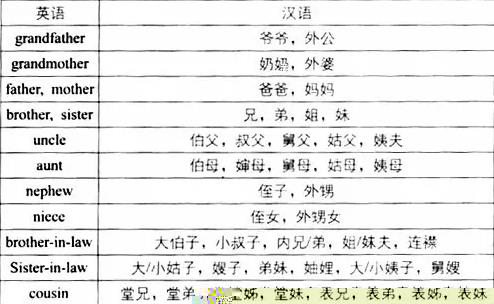 英语 汉语
grandfather 爷爷，外公
grandmother 奶奶，外婆
father, mother 爸爸，妈妈
brother, sister 兄，弟，姐，妹
uncle 伯父，叔父，舅父，姑父，姨夫
aunt 伯母，婶母，舅母，姑母，姨母
nephew 侄子，外甥
niece 侄女，外甥女
brother-in-law 大伯子，小叔子，内兄/弟，姐/妹夫，连襟
Sister-in-law 大/小姑子，嫂子，弟妹，妯娌，大/小姨子，舅嫂
cousin 堂兄，堂弟，姊，堂妹，表兄，表弟，表姊，表妹